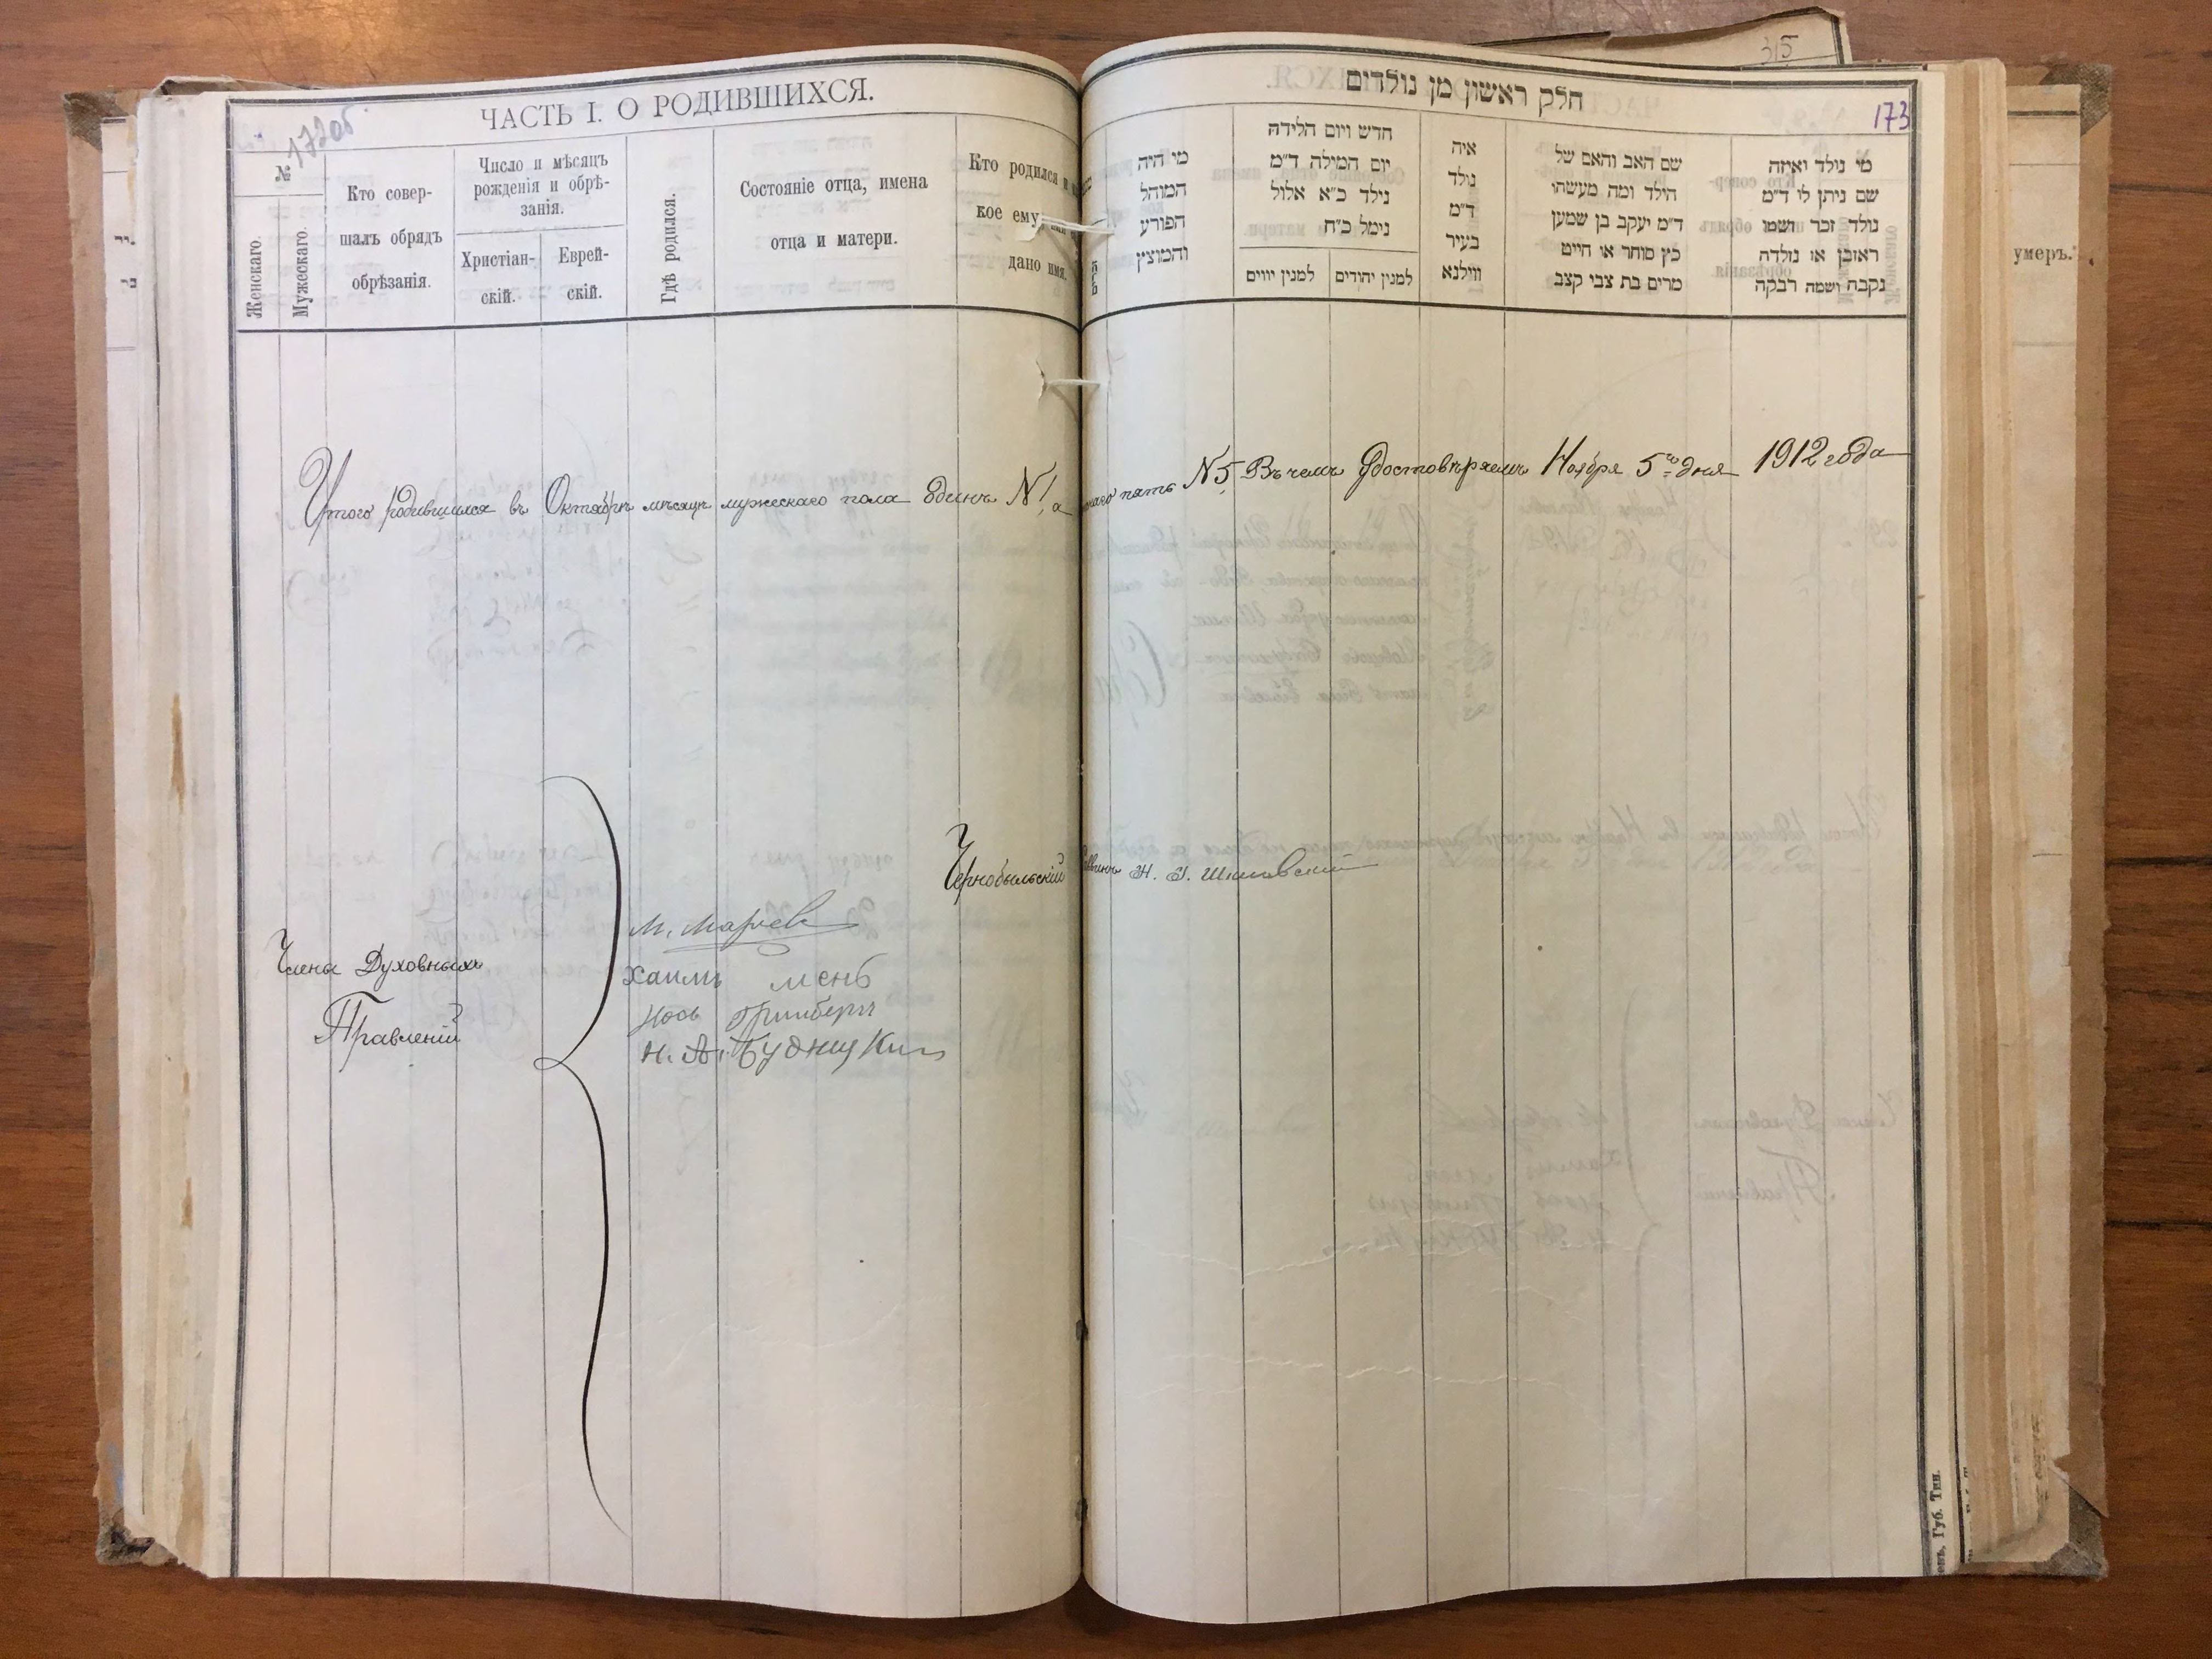 172об
ЧАСТЬ I. О РОДИВШИХСЯ.
№
Женскаго.
Мужескаго.
Кто совер-
шалъ обрядъ
обрѣзанія.
Число и мѣсяцъ
рожденія и обрѣ-
занія.
Христіан-
скій.
Еврей-
скій.
Гдѣ родился.
Состояніе отца, имена
отца и матери.
Кто родился и
кое ему
дано имя.
Итого родившихся въ Октябрѣ мѣсяцѣ мужескаго пола одинъ №1, а
Чернобыльскій
Члены Духовныхъ
Правленій
Хаимъ
Гринбергъ
Н. А. Будницкій
315
חלק ראשון מן נולדים
173
מי היה
המוהל
הפורע
והמוצץ
חדש ויום הלידה
יום המילה ד״מ
נילד כ״א אלול
נימל כ״ח
למנין יווים
למנין יהודים
איה
נולד
ד״מ
בעיר
ווילנא
שם האב והאם של
הילד ומה מעשהו
ד״מ יעקב בן שמען
כץ סוחר או חייט
מרים בת צבי קצב
מי נולד ואיזה
שם ניתן לו ד״מ
נולד זכר ושמו
ראובן או נולדה
נקבה ושמה רבקה
пять №5 Въ чемъ удостовѣряемъ Ноября 5го дня 1912 года
умеръ.
Губ. Тип.